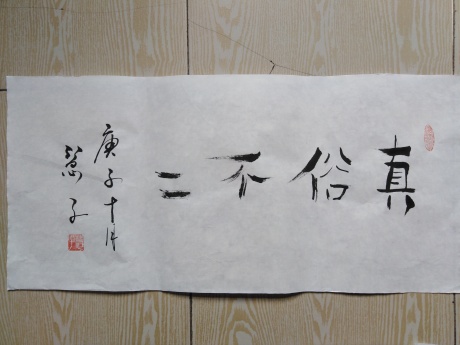 真俗不二
庚子十月
子